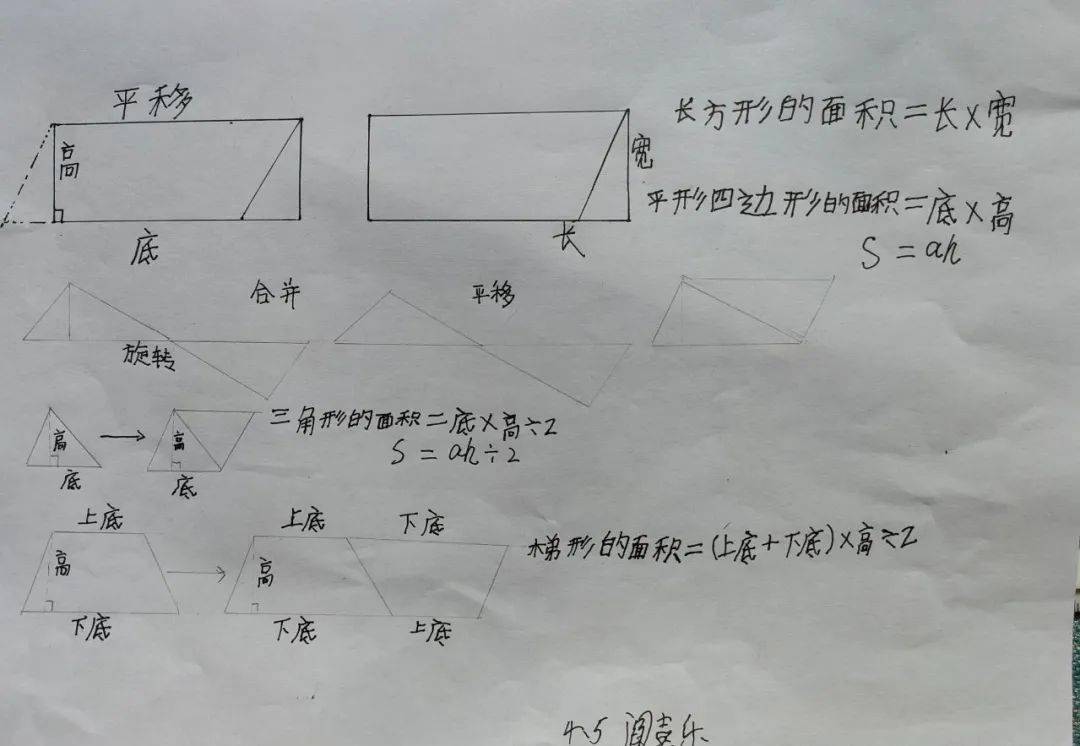 平移
高
底
宽
长
长方形的面积=长×宽
平形四边形的面积=底×高
S=ah
合并
旋转
平移
高
底
高
底
三角形的面积=底×高÷2
S=ah÷2
上底
高
下底
上底 下底
高
下底 上底
梯形的面积=(上底+下底)×高÷2
4.5